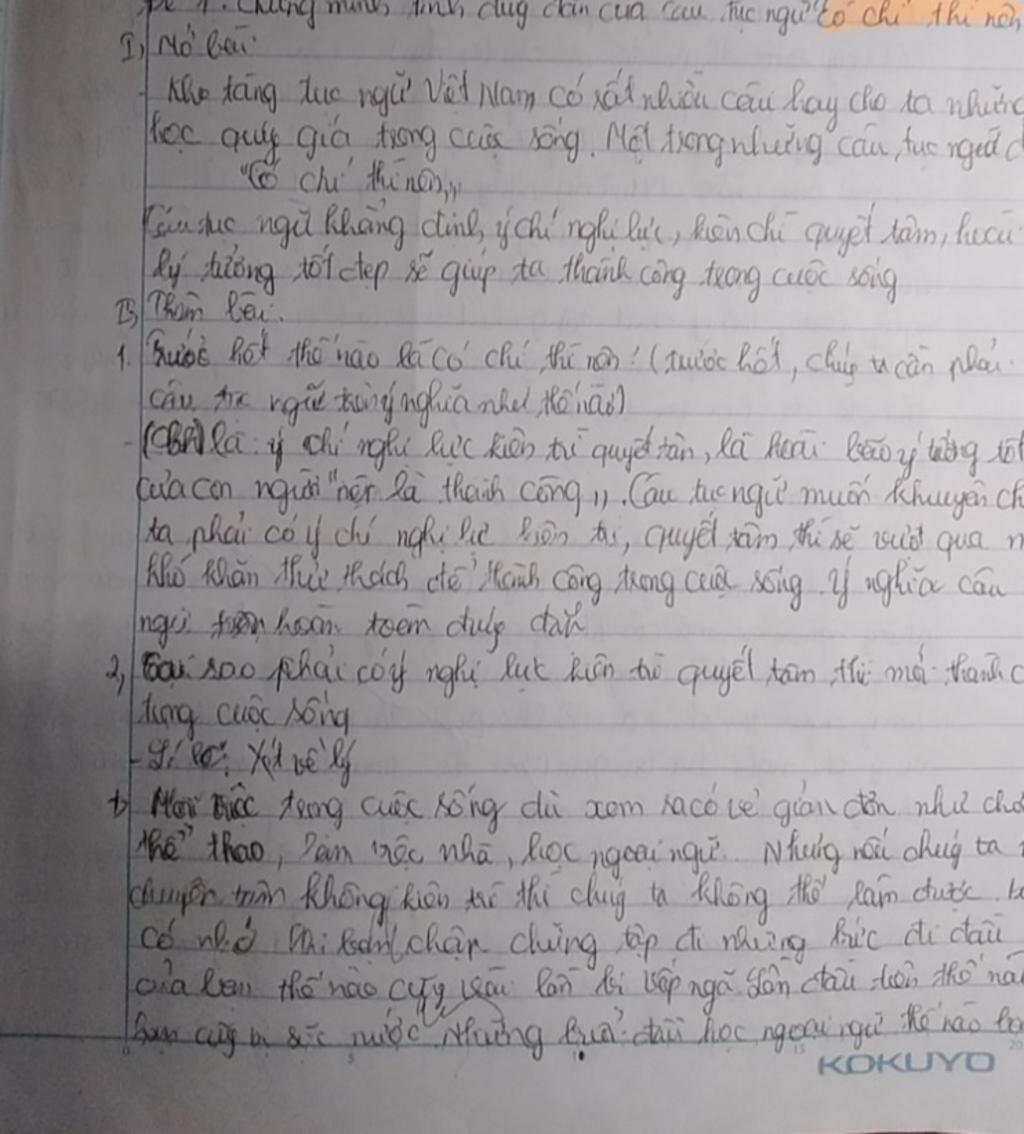 Chứng minh tính đúng đắn của câu tục ngữ "Có chí thì nên
I, Mở bài
- Kho tàng tục ngữ Việt Nam có rất nhiều câu hay cho ta những
học quý giá trong cuộc sống. Một trong những câu tục ngữ
"Có chí thì nên"
Câu tục ngữ khẳng định ý chí nghị lực, kiên chì quyết tâm, hoài
lý tưởng tốt đẹp sẽ giúp ta thành công trong cuộc sống
B, Thân bài.
1. Trước hết thế nào là có chí thì nên! (trước hết, chúng ta cần phải
câu tục ngữ trùng ý nghĩa như thế nào)
- là ý chí nghị lực kiên trì quyết tân, là hoài bão ý tưởng tốt
của con người "nên là thành công". Câu tục ngữ muốn khuyên ch
ta phải có ý chí nghị lực kiên trì, quyết tâm thì sẽ vượt qua
khó khăn thức thách để thành công trong cuộc sống. ý nghĩa câu
ngữ hoàn toàn đúng đắn
2, Tại sao phải có ý nghị lực kiên trì quyết tâm thì mới thành c
trong cuộc sống
- Xét về lý
Mọi việc trong cuộc sống dù xem ra có vẻ giản đơn như chơi
thể thao, làm việc nhà, học ngoại ngữ. Nhưng nếu chúng ta
chuyên không kiên trì thì chúng ta không thể làm được.
có nhớ khi chập chững tập đi những bước đi đầu
của bạn thế nào cũng vài lần bị vấp ngã. Lần đầu tiên thế nà
bạn cũng bị sặc nước. Những buổi đầu học ngoại ngữ thế nào
KOKUYO